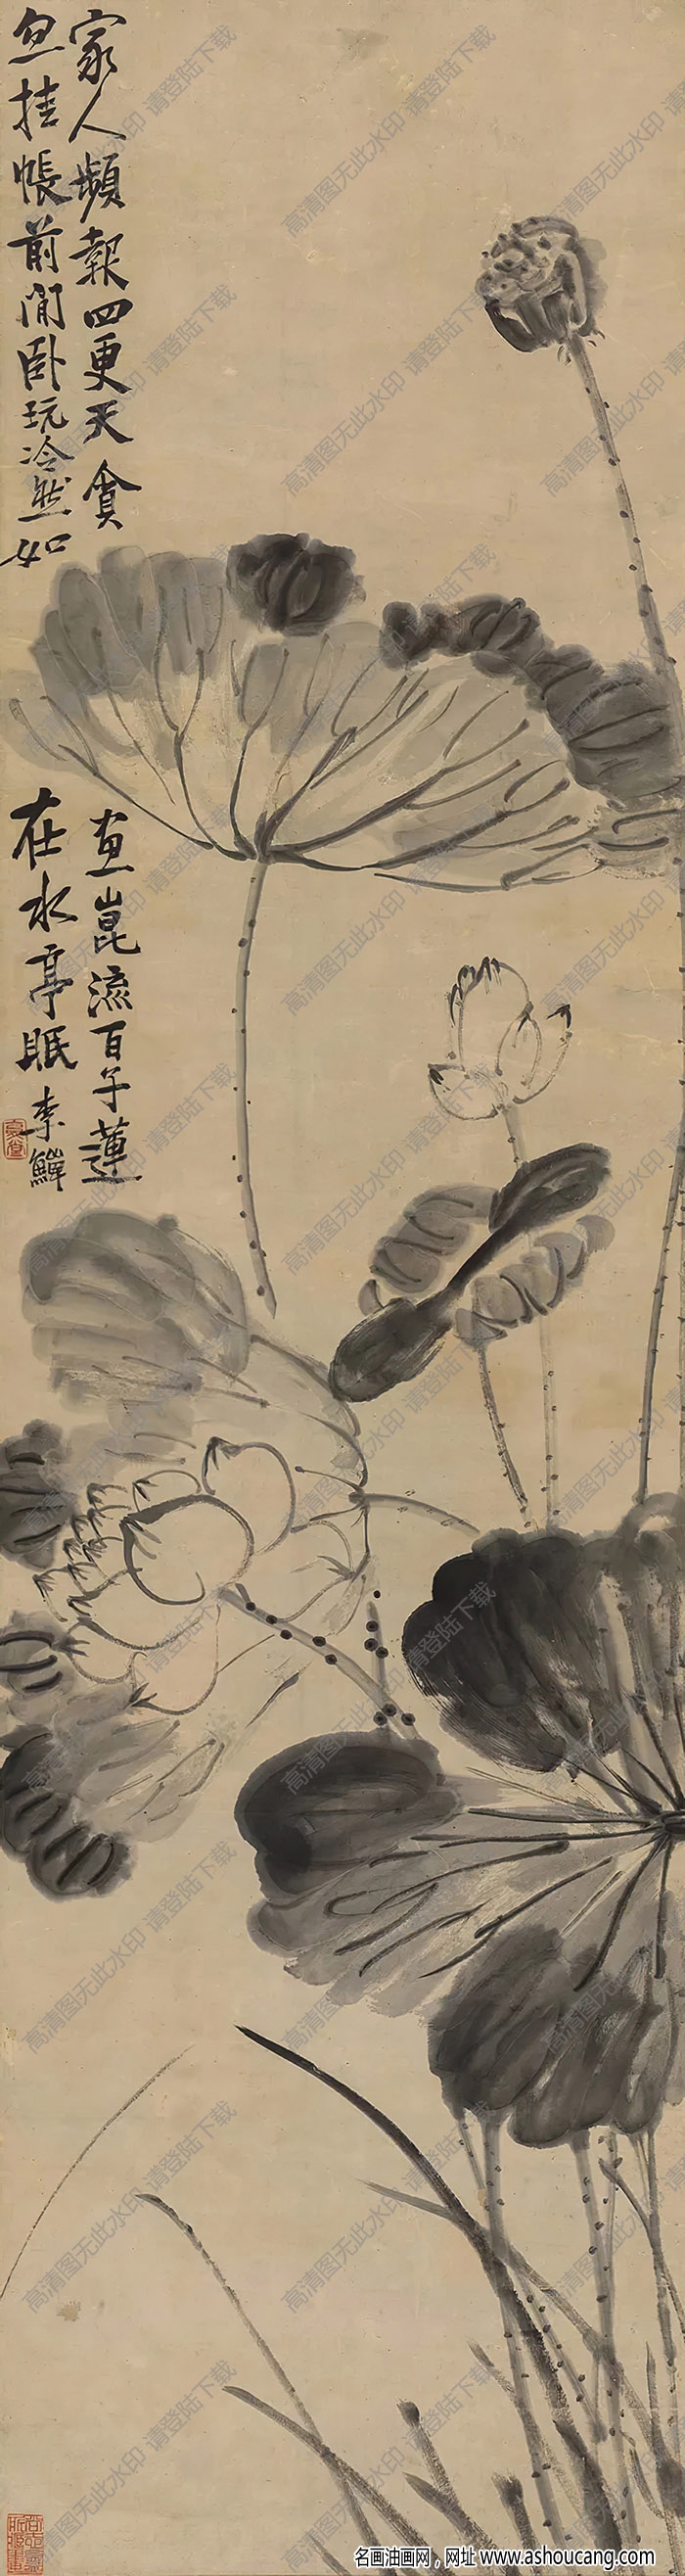 家人頻報四更天貪
畫崑流百子蓮
忽挂帳前閒卧玩冷然如
在水亭眠 李鱓
高清图无此水印 请登陆下载
名画油画网，网址 www.ashoucang.com